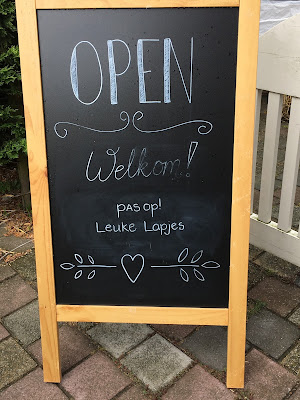 OPEN
Welkom!
pas op!
Leuke Lapjes